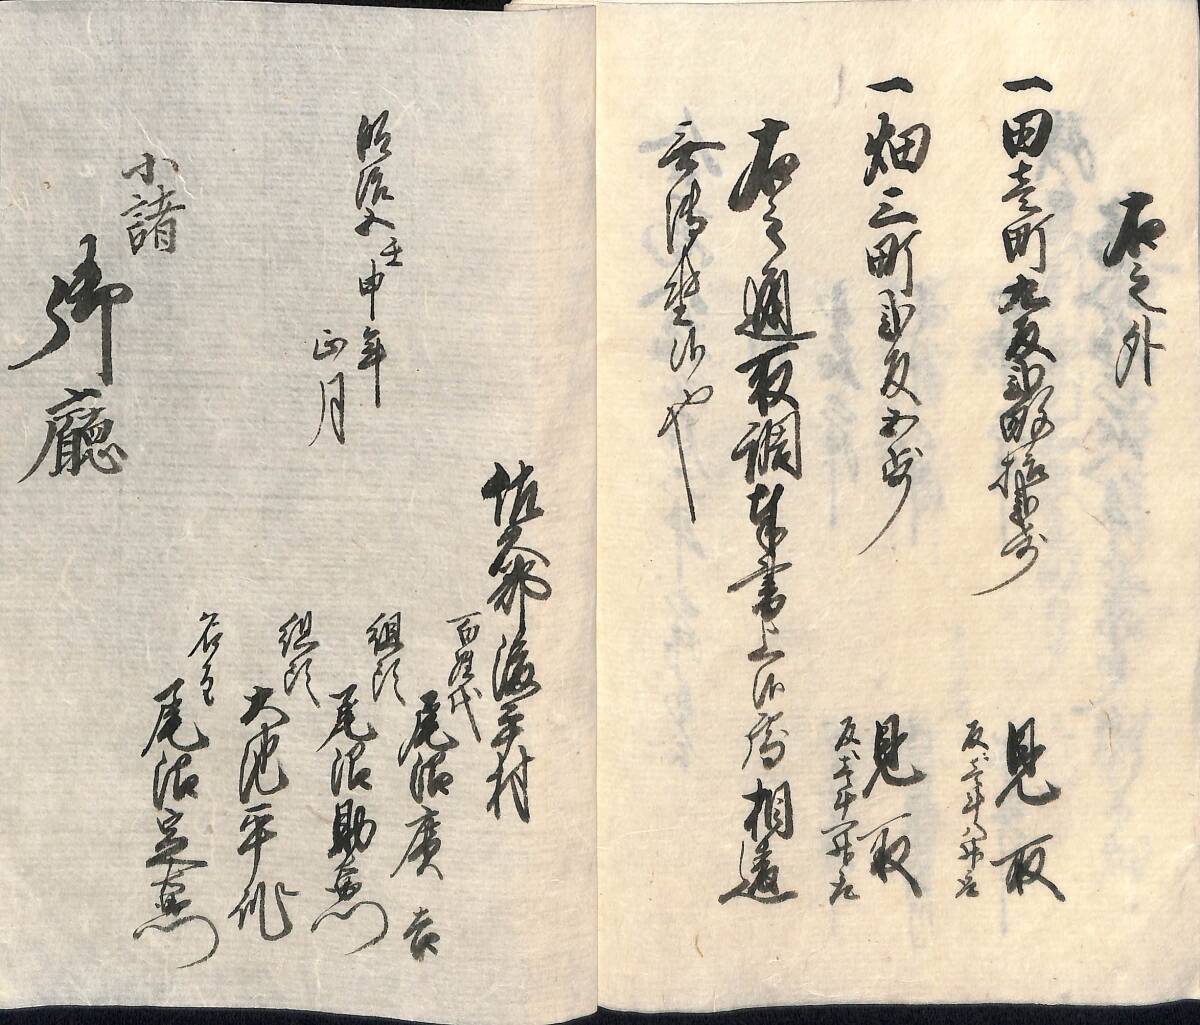 右之外
一田壱町九反弐畝拾弐歩
見取
反ニ壱斗八升取
一畑三町弐反五歩
見取
反ニ壱斗一升取
右之通取調奉書上候処相違
無御座候也
佐久郡
村
百姓代
尾沼廣吉
組頭
尾沼助
組頭
大池平
名主
尾沼定
明治五壬申年
正月
小諸
御廳